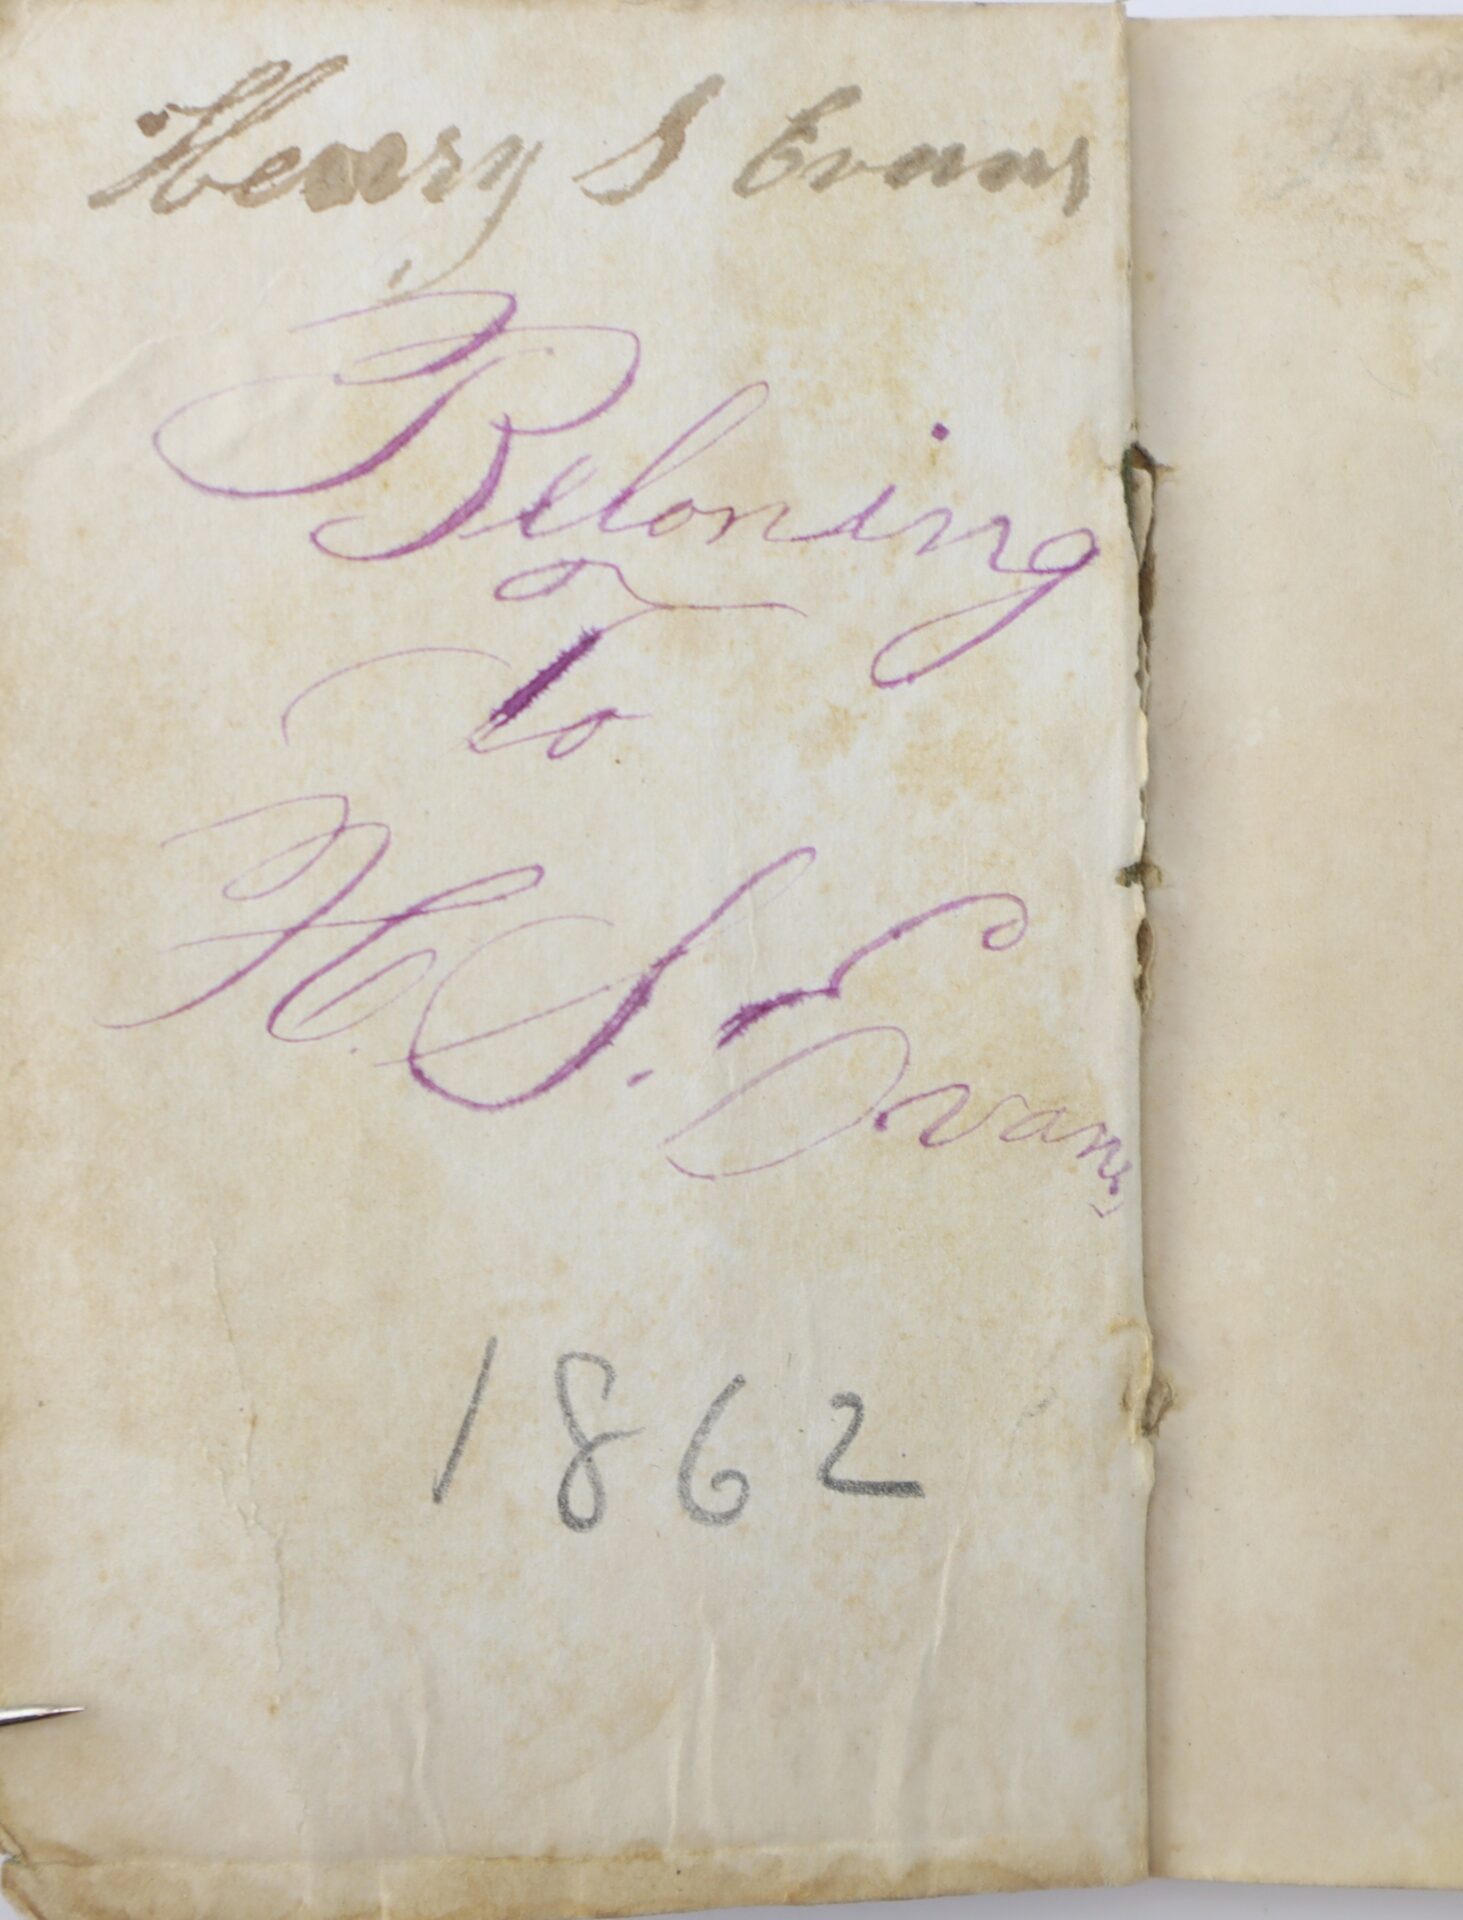 Henry S Evans
Beloning
To
H. S. Evans
1862